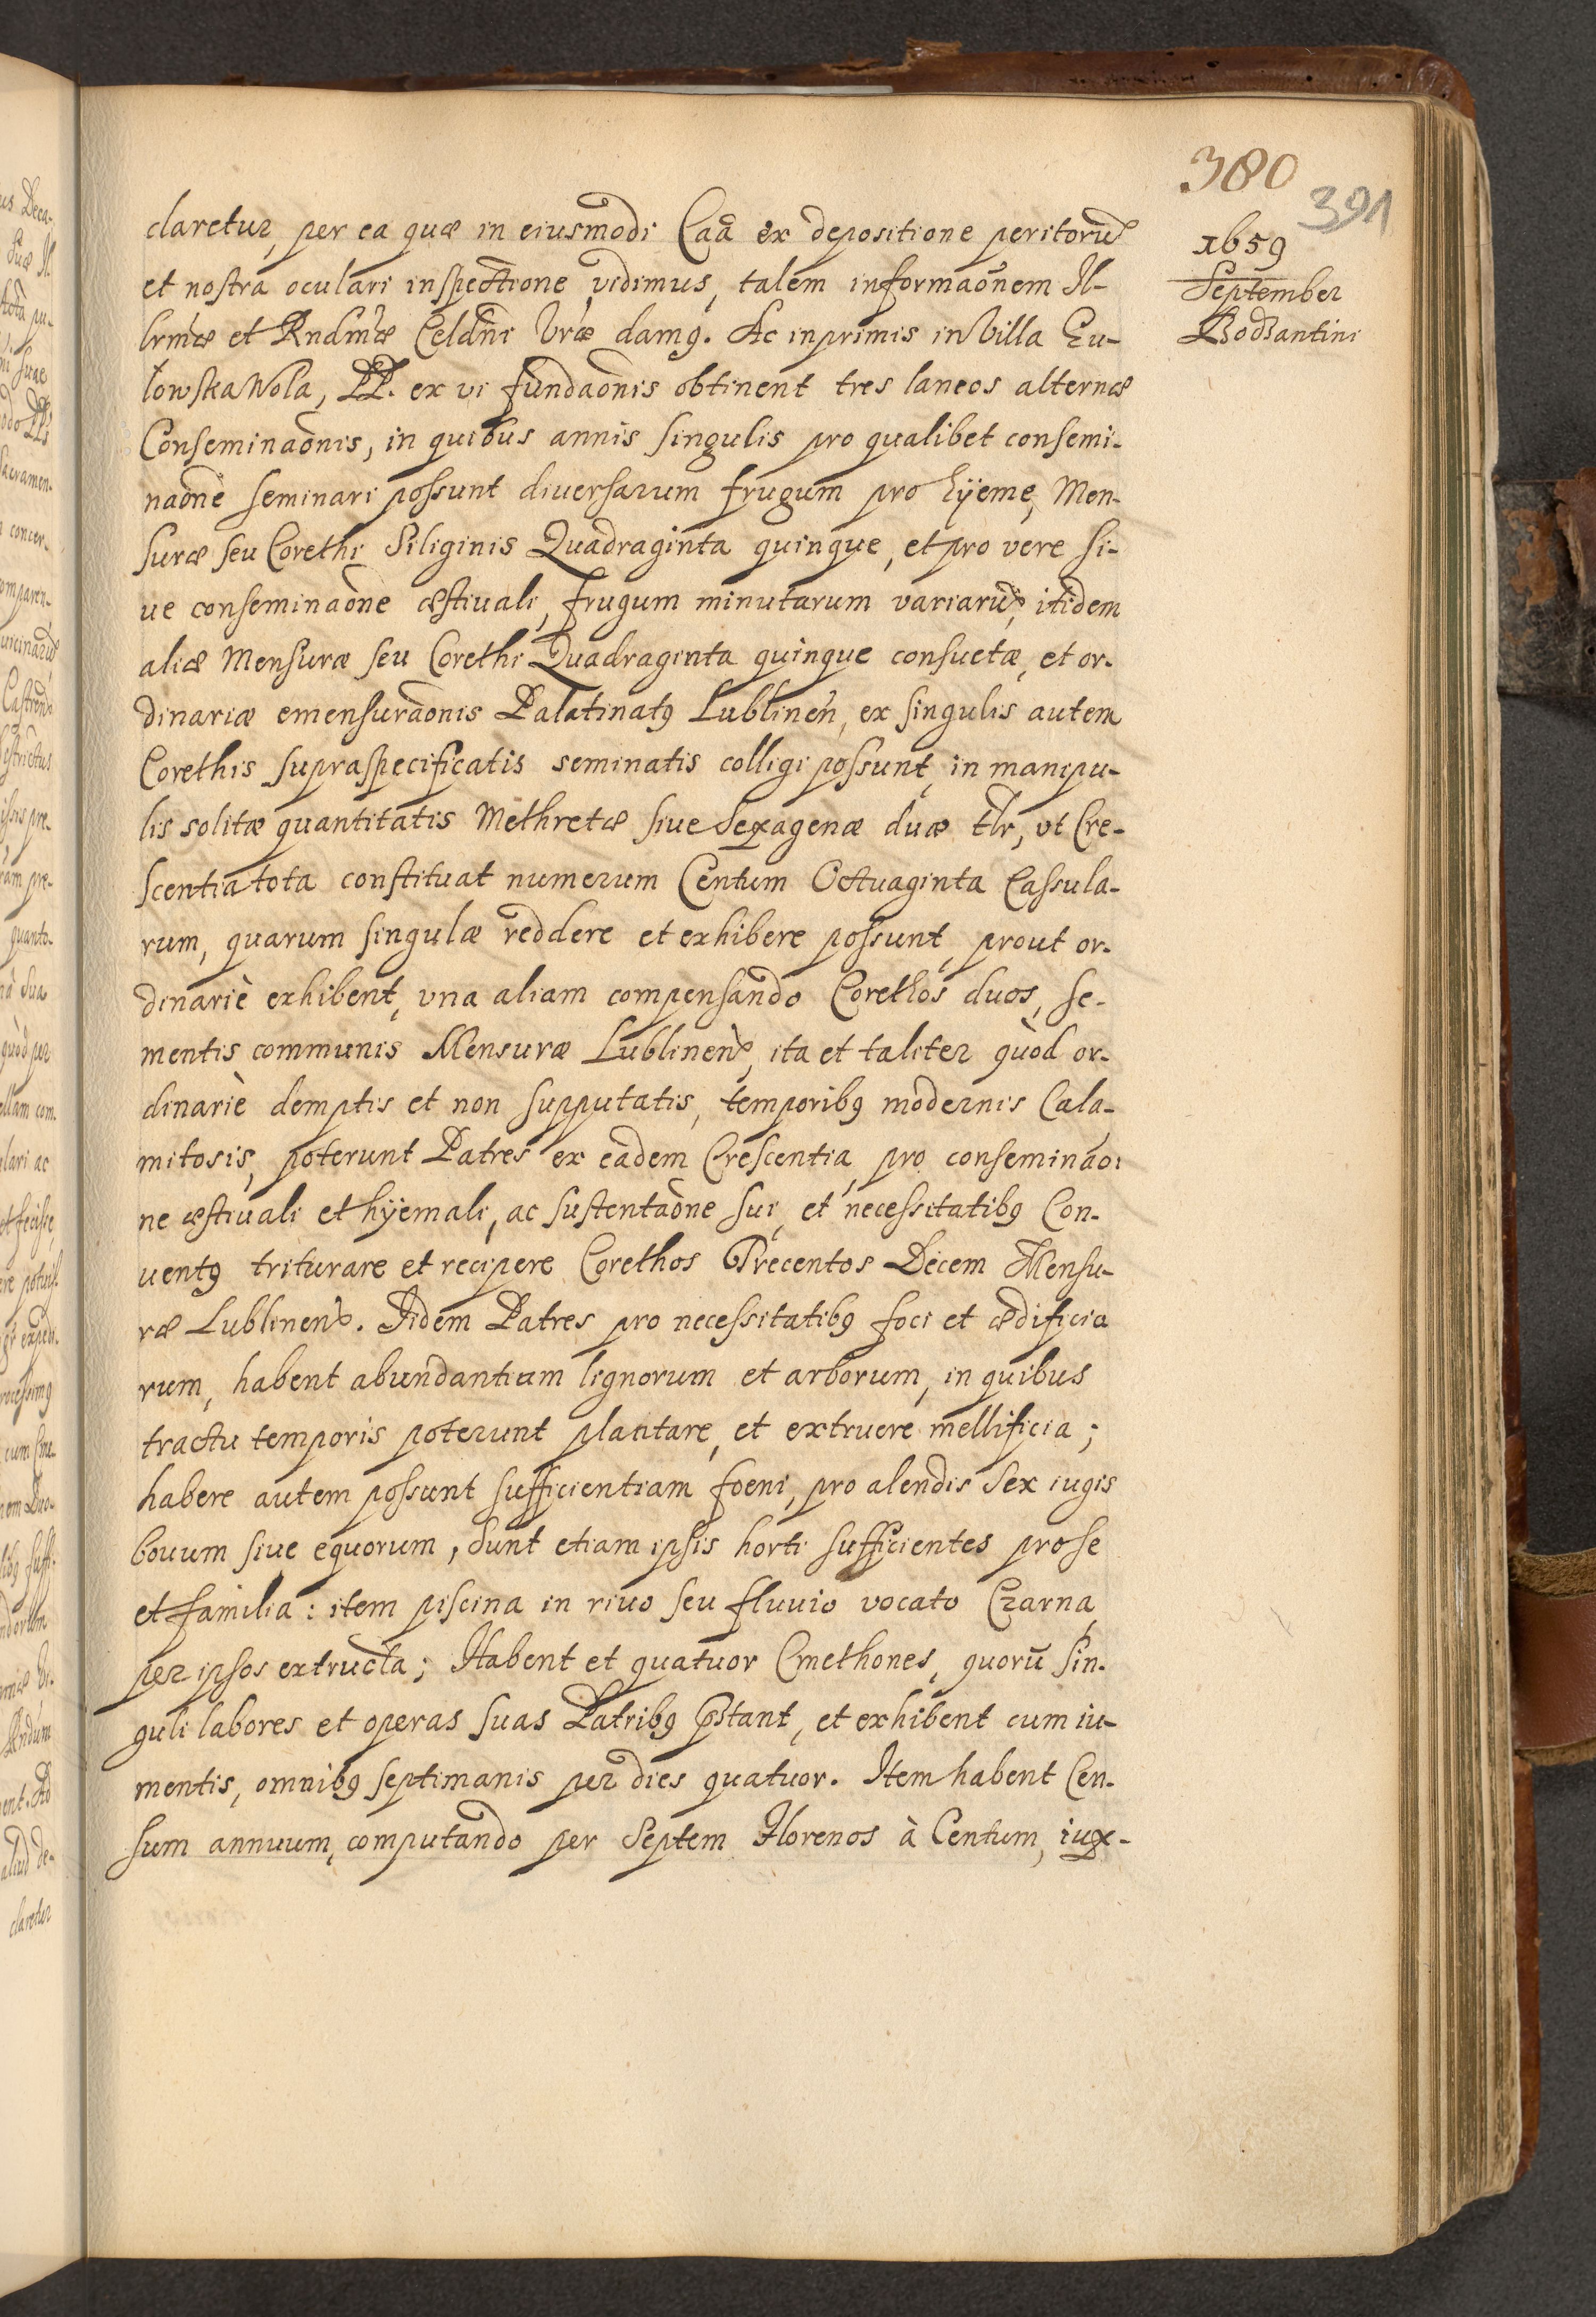 380
391
1659
September
Bodzantini
claretur, per ea quæ in eiusmodi Caã ex depositione peritorũ
et nostra oculari inspectione vidimus, talem informaõnem Il-
lrmæ et Rndmæ Celdni Vræ damq. Ac inprimis in Villa Gu-
lowska Wola, PP. ex vi fundaõnis obtinent tres laneos alternæ
Conseminaõnis, in quibus annis singulis pro qualibet consemi-
naõne seminari possunt diuersarum frugum pro hyeme, Men-
suræ seu Corethi Siliginis Quadraginta quinque, et pro vere si-
ue conseminaõne æstiuali, frugum minutarum variarũ, itidem
aliæ Mensuræ seu Corethi Quadraginta quinque consuetæ, et or-
dinariæ emensuraõnis Palatinatq Lublinen, ex singulis autem
Corethis supraspecificatis seminatis colligi possunt, in manipu-
lis solitæ quantitatis Methretæ siue Sexagenæ duæ tlr, vt Cre-
scentia tota constituat numerum Centum Octuaginta Cassula-
rum, quarum singulæ reddere et exhibere possunt, prout or-
dinariè exhibent, vna aliam compensando Corethos duos, se-
mentis communis Mensuræ Lublinen, ita et taliter quòd or-
dinariè demptis et non supputatis, temporibq modernis Cala-
mitosis, poterunt Patres ex eadem Crescentia pro conseminaõ-
ne æstiuali et hyemali, ac sustentaõne sui, et necessitatibq Con-
uentq triturare et recipere Corethos Trecentos Decem Mensu-
ræ Lublinen. Iidem Patres pro necessitatibq foci et ædificio
rum, habent abundantiam lignorum et arborum, in quibus
tractu temporis poterunt plantare, et extruere mellificia;
habere autem possunt sufficientiam foeni, pro alendis Sex iugis
bouum siue equorum, Sunt etiam ipsis horti sufficientes pro se
et familia: item piscina in riuo seu fluuio vocato Czarna
per ipsos extructa; Habent et quatuor Cmethones, quorũ sin-
guli labores et operas suas Patribq pstant, et exhibent cum iu-
mentis, omnibq septimanis per dies quatuor. Item habent Cen-
sum annuum, computando per Septem Florenos à Centum, iux-